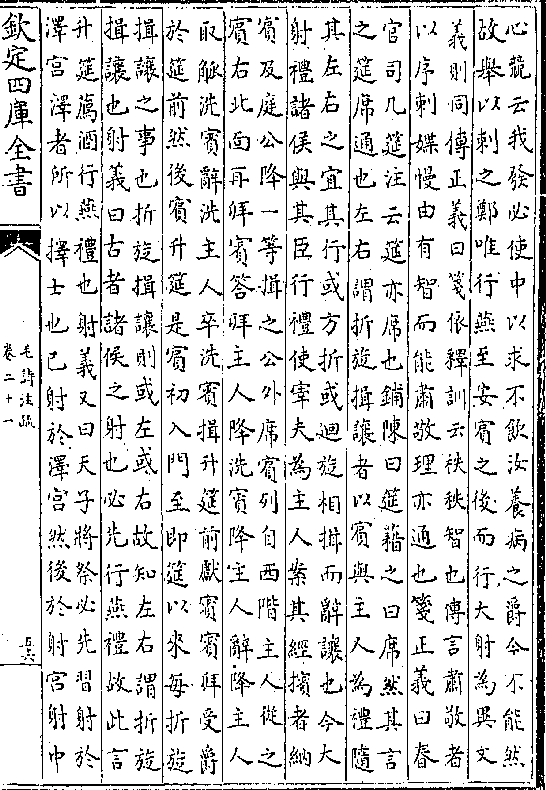 心競云我發必使中以求不飲汝養病之爵今不能然
故舉以刺之鄭唯行燕至安賓之後而行大射為異文
義則同傳正義曰箋依釋訓云秩秩智也傳言肅敬者
以序刺媟慢由有智而能肅敬理亦通也箋正義曰春
官司几筵注云筵亦席也鋪陳曰筵藉之曰席然其言
之筵席通也左右謂折旋揖讓者以賓與主人為禮隨
其左右之宜其行或方折或迴旋相揖而辭讓也今大
射禮諸侯與其臣行禮使宰夫為主人案其經擯者納
賓及庭公降一等揖之公外席賓列自西階主人從之
賓右北面再拜賓答拜主人降洗賓降主人辭降主人
取觚洗賓辭洗主人卒洗賓揖升筵前獻賓賓拜受爵
於筵前然後賓升筵是賓初入門至即筵以來每折旋
揖讓之事也折旋揖讓則或左或右故知左右謂折旋
揖讓也射義曰古者諸侯之射也必先行燕禮故此言
升筵薦酒行燕禮也射義又曰天子將祭必先習射於
澤宮澤者所以擇士也已射於澤宮然後於射宮射中
欽定四庫全書
毛詩注疏
卷二十一